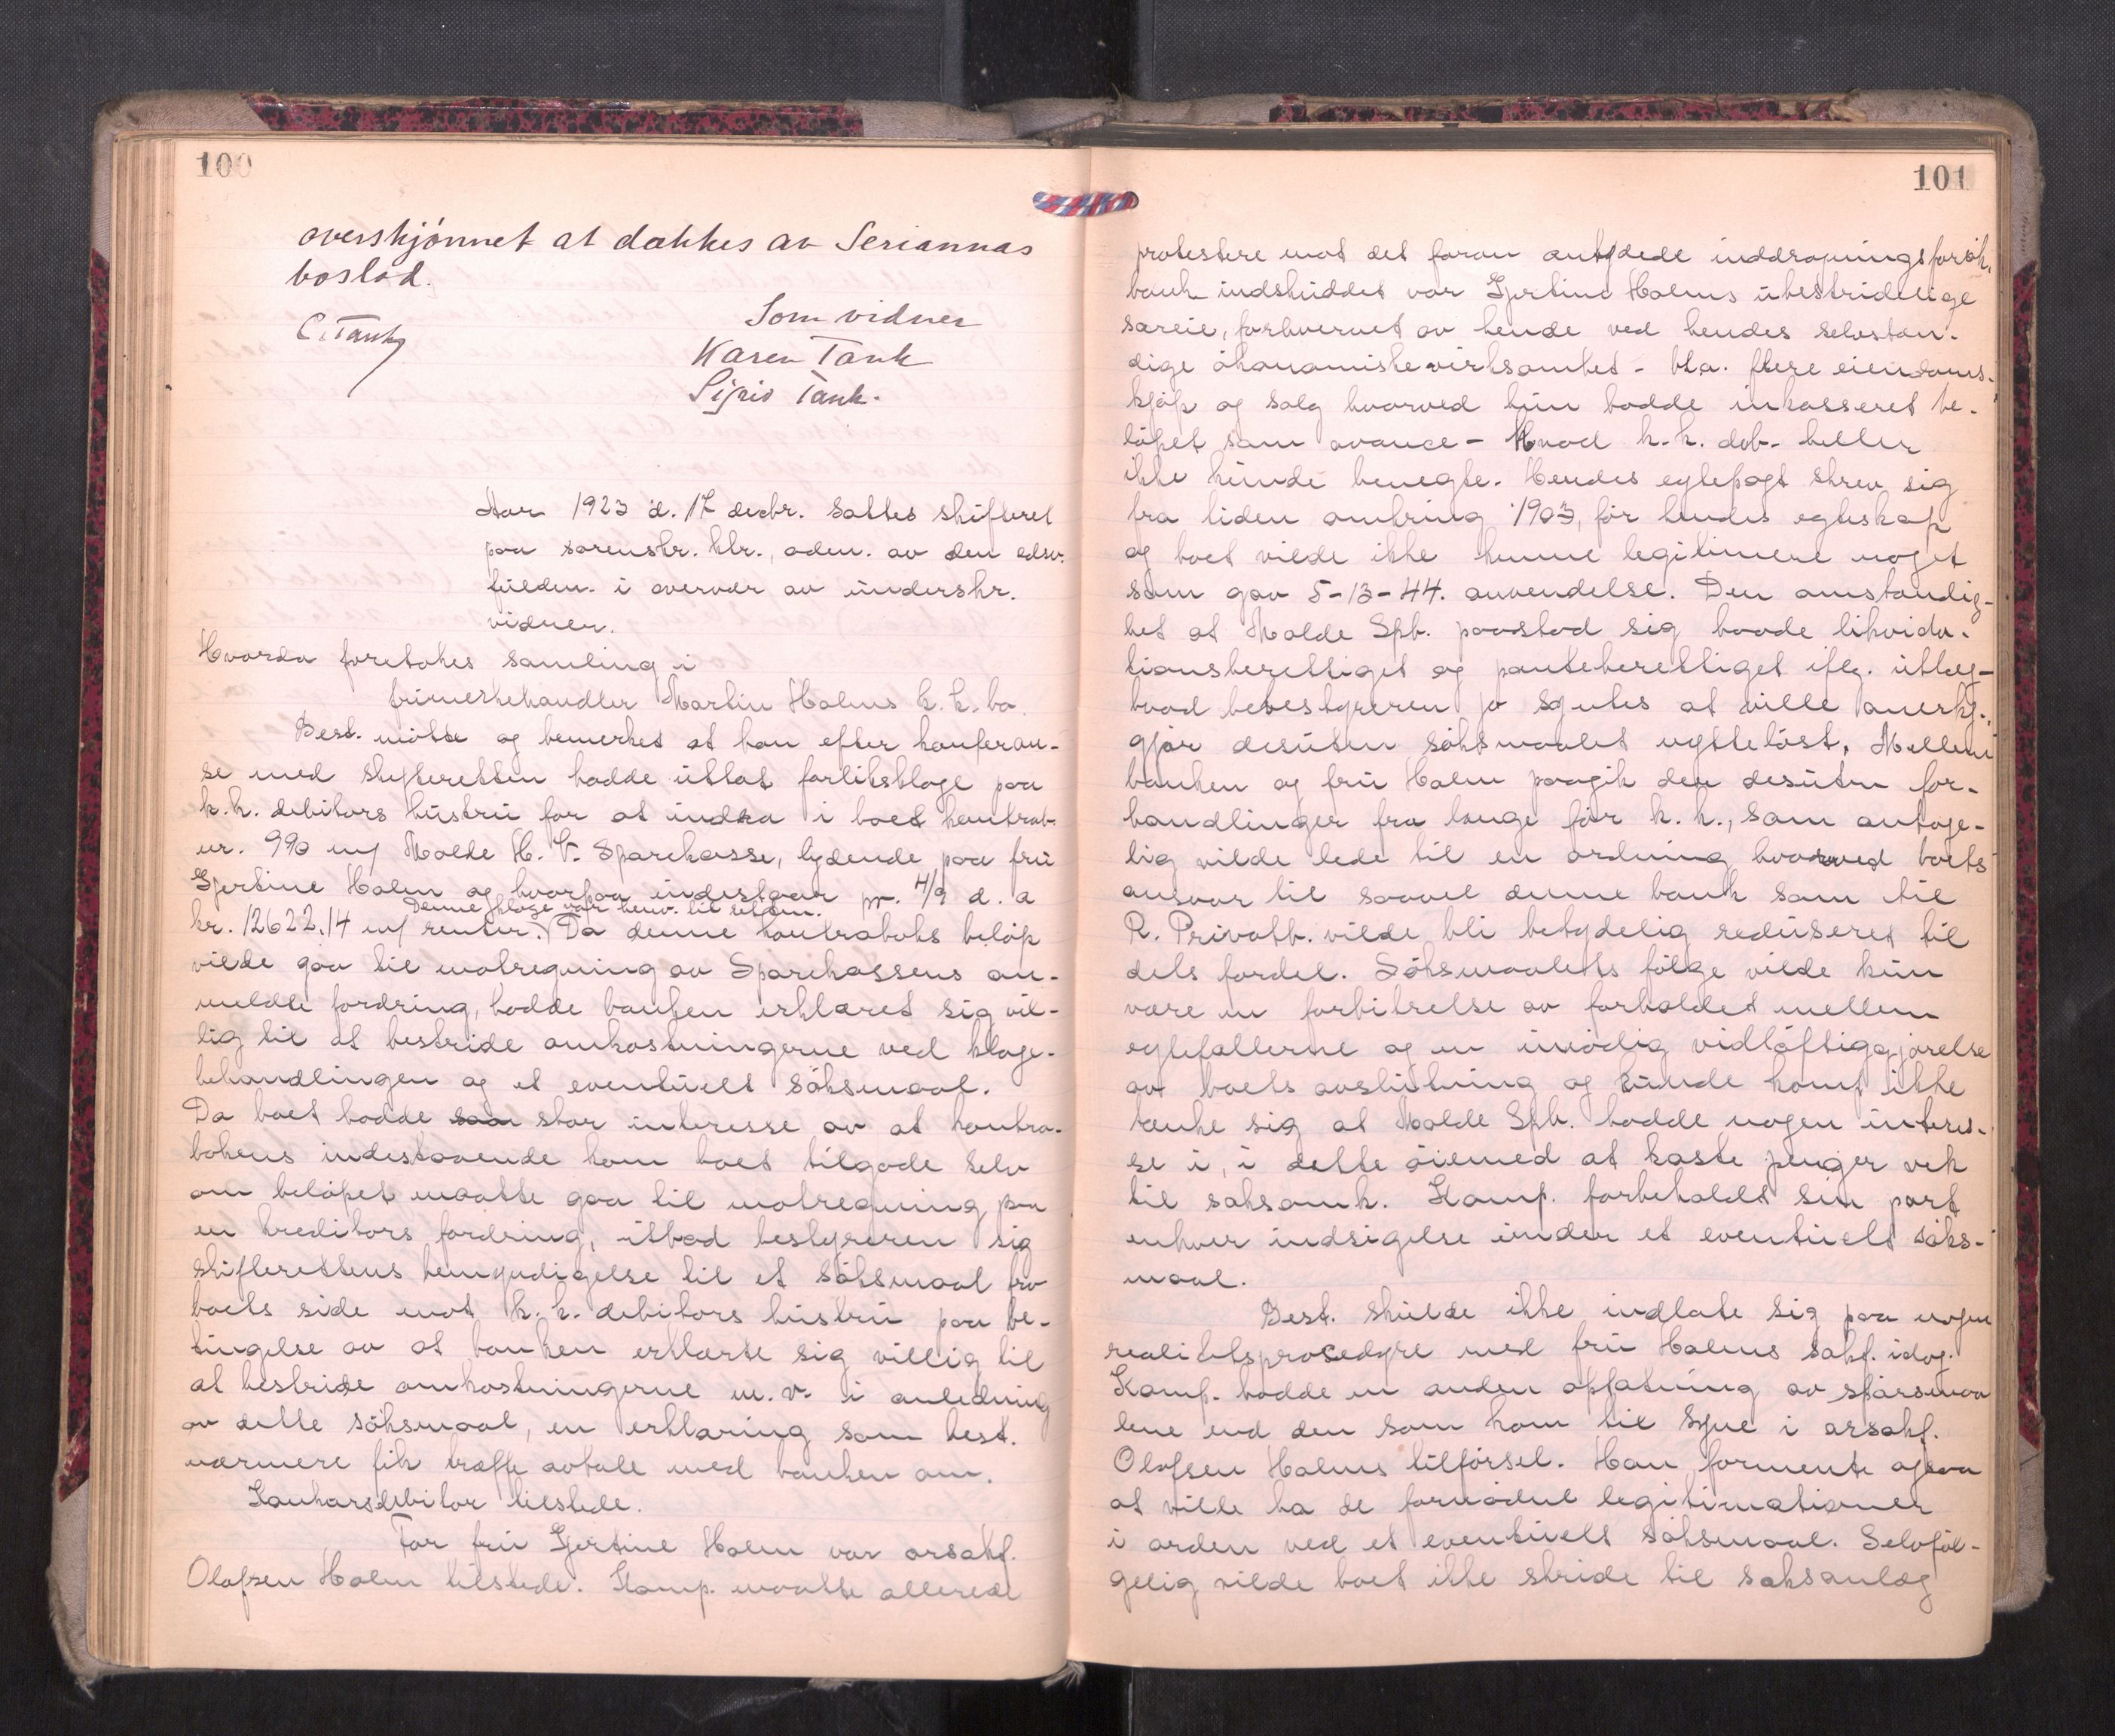 100
overskjönnet at dækkes av Seriannas
boslod.
Som vidner
C. Tank
Karen Tank
Sigrid Tank.
Aar 1923 d. 17 decbr. sattes skifteret
paa sorenskr. ktr., aden. av den edsv.
fuldm. i overvær av underskr.
vidner.
Hvorda foretokes samling i
frimerkehandler Martin Holms k.k. bo.
Best. mötte og bemerket at han efter konferan-
se med skifteretten hadde uttat forlikskloge paa
k.k. debitors hustru for at inddra i boet kontrab.
nr. 990 m/ Molde H. & Sparekasse, lydende paa fru
Gjertine Holm og hvorpaa indestaar pr. 4/9 d. a
Denne kloge var henv. til retten.
kr. 12622,14 m/ renter. Da denne kontraboks belöp
vilde gaa til motregning av Sparekassens an-
meldte fordring, hadde banken erklæret sig vil-
lig til at bestride omkostningerne ved kloge-
behandlingen og et eventuelt söksmaal.
Da boet hadde saa stor interesse av at kontra-
bokens indestaaende kom boet tilgode selv
om belöpet maatte gaa til motregning paa
en kreditors fordring, utbad bestyreren sig
skifterettens bemyndigelse til et söksmaal fra
boets side mot k.k. debitors hustru paa be-
tingelse av at banken erklærte sig villig til
at bestride omkostningerne m.v. i anledning
av dette söksmaal, en erklæring som best.
nærmere fik træffe avtale med banken om.
Konkursdebitor tilstede.
For fru Gjertine Holm var orsakf.
Olafsen Holm tilstede. Komp. maatte allerede
101
protestere mot det foran antydede inddragningsforsök,
bank indskuddet var Gjertine Holms ubestridelige
særeie, forhvervet av hende ved hendes selvstæn-
dige ökonomiske virksomhet - bl.a. flere eiendoms-
kjöp og salg hvorved hun hadde inkasseret be-
löpet som avance - Hvad k.k. deb. heller
ikke kunde benegte. Hendes egtepagt skrev sig
fra tiden omkring 1903, för hendes egteskap
og boet vilde ikke kunne legitimere noget
som gav 5-13-44. anvendelse. Den omstændig-
het at Molde Spb. paastod sig baade likvida-
tionsberettiget og panteberettiget iflg. utlæg-
hvad bobestyreren jo syntes at ville anerkj.,
gjör desuten söksmaalet nytteløst. Mellem
banken og fru Holm paagik der desuten for-
handlinger fra længe för k.k., som antage-
lig vilde lede til en ordning hvorved boets
ansvar til saavel denne bank som til
R. Privatb. vilde bli betydelig reduseret til
dets fordel. Söksmaalets fölge vilde kun
være en forbitrelse av forholdet mellem
egtefællerne og en unödig vidlöftiggjörelse
av boets avslutning og kunde komp ikke
tænke sig at Molde Spb. hadde nogen interes-
se i, i dette öiemed at kaste penger vek
til saksomk. Komp. forbeholdt sin part
enhver indsigelse under et eventuelt söks-
maal.
Best. skulde ikke indlate sig paa nogen
realitetsprosedyre med fru Holms sakf. idag.
Komp. hadde en anden opfatning av spörsmaa
lene end den som kom til syne i orsakf.
Olafsen Holms tilförsel. Han formente ogsaa
at vilde ha de fornödne legitimationer
i orden ved et eventuelt söksmaal. Selvföl-
gelig vilde boet ikke skride til saksanlæg